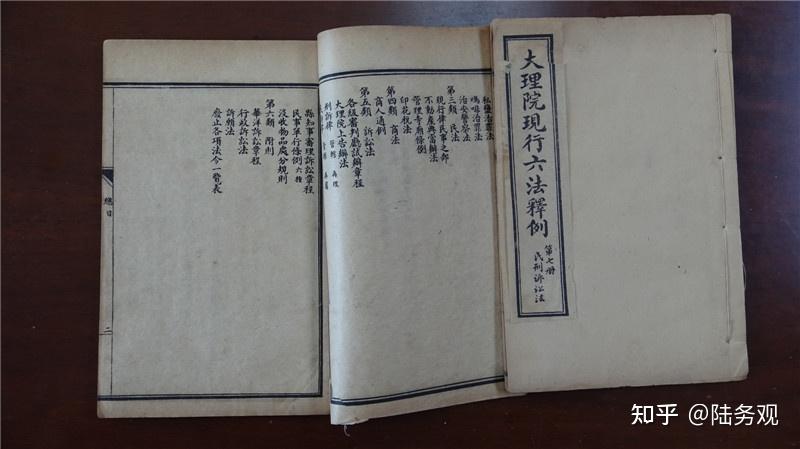 大理院現行六法釋例
第七册
民刑訴訟法
私鹽治罪法
嗎啡治罪法
治安警察法
第三類 民法
現行律民事之部
不動產典當辦法
管理寺廟條例
印花稅法
第四類 商法
商人通例
第五類 訴訟法
各級審判廳試辦章程
大理院上告辦法
刑訴律 管轄 再理
縣知事審理訴訟章程
民事單行條例六種
沒收物品處分規則
第六類 附則
華洋訴訟章程
行政訴訟法
訴願法
廢止各項法令一覽表
總目
二
知乎 @陆务观